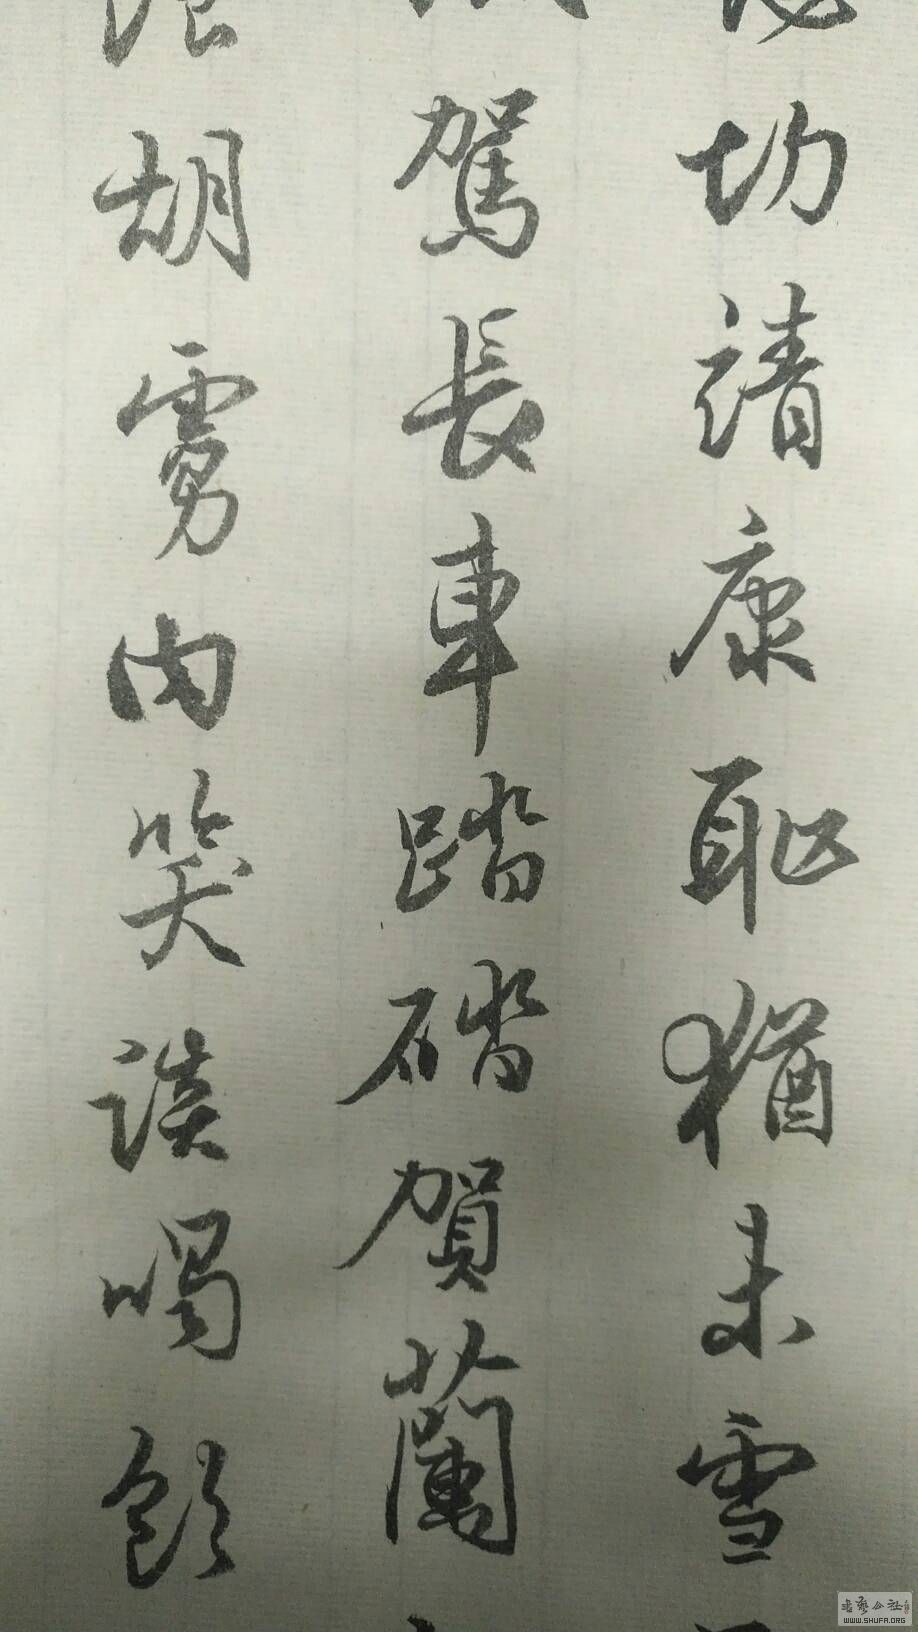 切靖康耻猶未雪
駕長車踏賀蘭
胡虜肉笑談喝飲
書藝公社
WWW.SHUFA.ORG